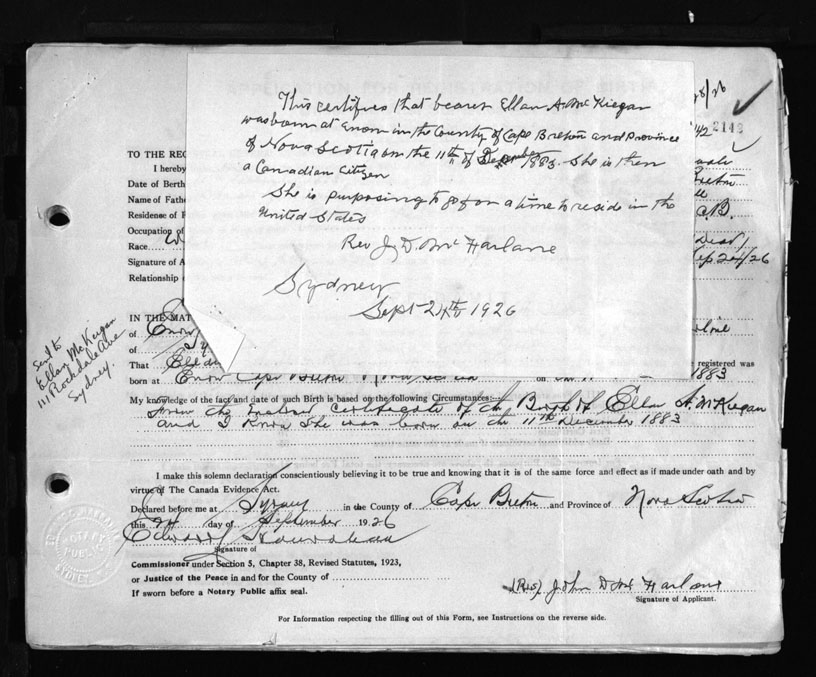 This certifies that bearer Ellan A. McKiegan
was born at Enon in the County of Cape Breton and Province
of Nova Scotia on the 11th of December 1883. She is then
a Canadian Citizen
She is purposing to go for a time to reside in the
United States
Rev J. D. McFarlane
Sydney
Sept 24th 1926
2142
TO THE REC
I hereby
Date of Berth
Breton
Name of Fathe
Residense of F
C.B.
Occupation of
Race
Signature of A
Sep 24/26
Relationship
IN THE MAT
of
of
That
e registered was
born at Enon Cape Breton Nova Scotia on 1883
My knowledge of the fact and date of such Birth is based on the following Circumstances:
from the certificate of the Birth of Ellan A. McKiegan
and I know she was born on the 11th December 1883
I make this solemn declaration conscientiously believing it to be true and knowing that it is of the same force and effect as if made under oath and by
virtue of The Canada Evidence Act.
Declared before me at Sydney in the County of Cape Breton and Province of Nova Scotia
this 24 day of September 1926
Edward
Signature of
Commissioner under Section 5, Chapter 38, Revised Statutes, 1923,
or Justice of the Peace in and for the County of
If sworn before a Notary Public affix seal.
(Rev) John D McFarlane
Signature of Applicant.
For Information respecting the filling out of this Form, see Instructions on the reverse side.
Sent to
Ellan McKeigan
111 Rockdale Ave
Sydney.
NOTARY
PUBLIC